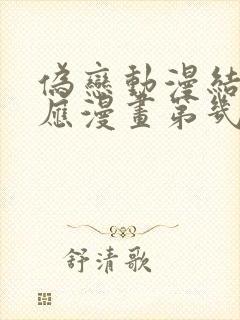 偽戀動漫結
應漫畫第幾
舒清歌